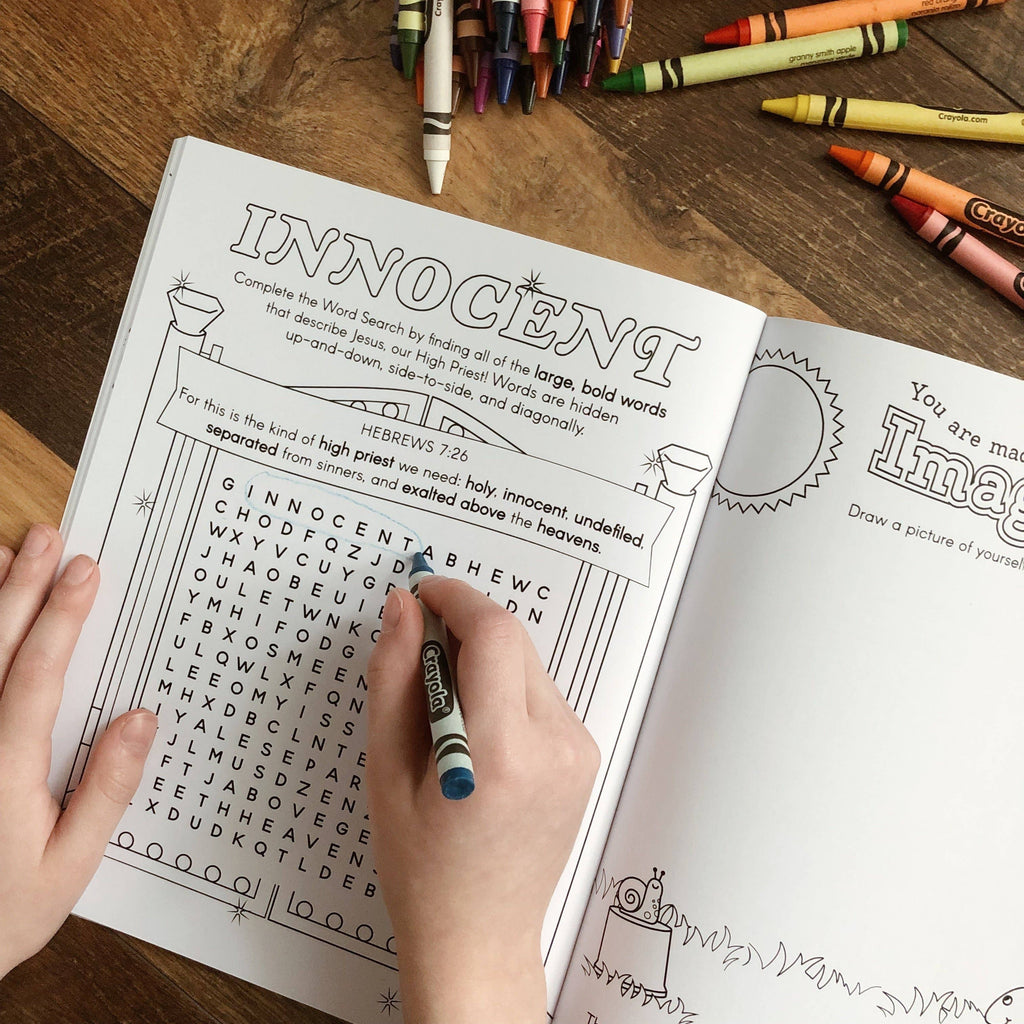 granny smith apple
Crayola.com
Crayola
INNOCENT
Complete the Word Search by finding all of the large, bold words
that describe Jesus, our High Priest! Words are hidden
up-and-down, side-to-side, and diagonally.
HEBREWS 7:26
For this is the kind of high priest we need: holy, innocent, undefiled,
separated from sinners, and exalted above the heavens.
G I N N O C E N T A B H E W C
C H O D F Q Z J D
L D N
W X Y V C U Y G
J H A O B E U I
O U L E T W N K
Y M H I F O D G
F B X O S M E E N
U L Q W L X F Q N
L E E O M Y I S S
M H X D B C L N T E
I Y A L E S E P A R
J L M U S D Z E N
F T J A B O V E G E
E E T H H E A V E N S
X D U D K Q T L D E B
Crayola
You are
Draw a picture of